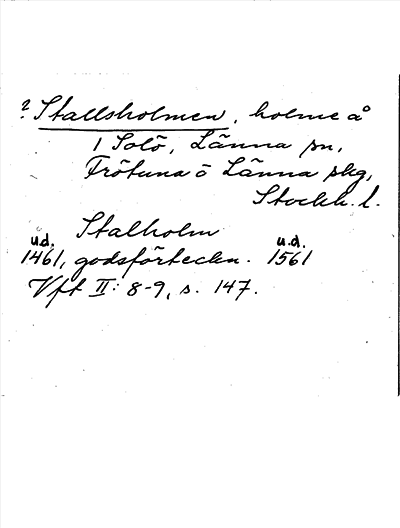 ? Stallsholmen, holme å
1 Solö, Länna sn,
Frötuna ö Länna skg,
Stockh. l.
Stalholm
u.d. u.d.
1461, godsförteckn. 1561
Vft II: 8-9, s. 147.